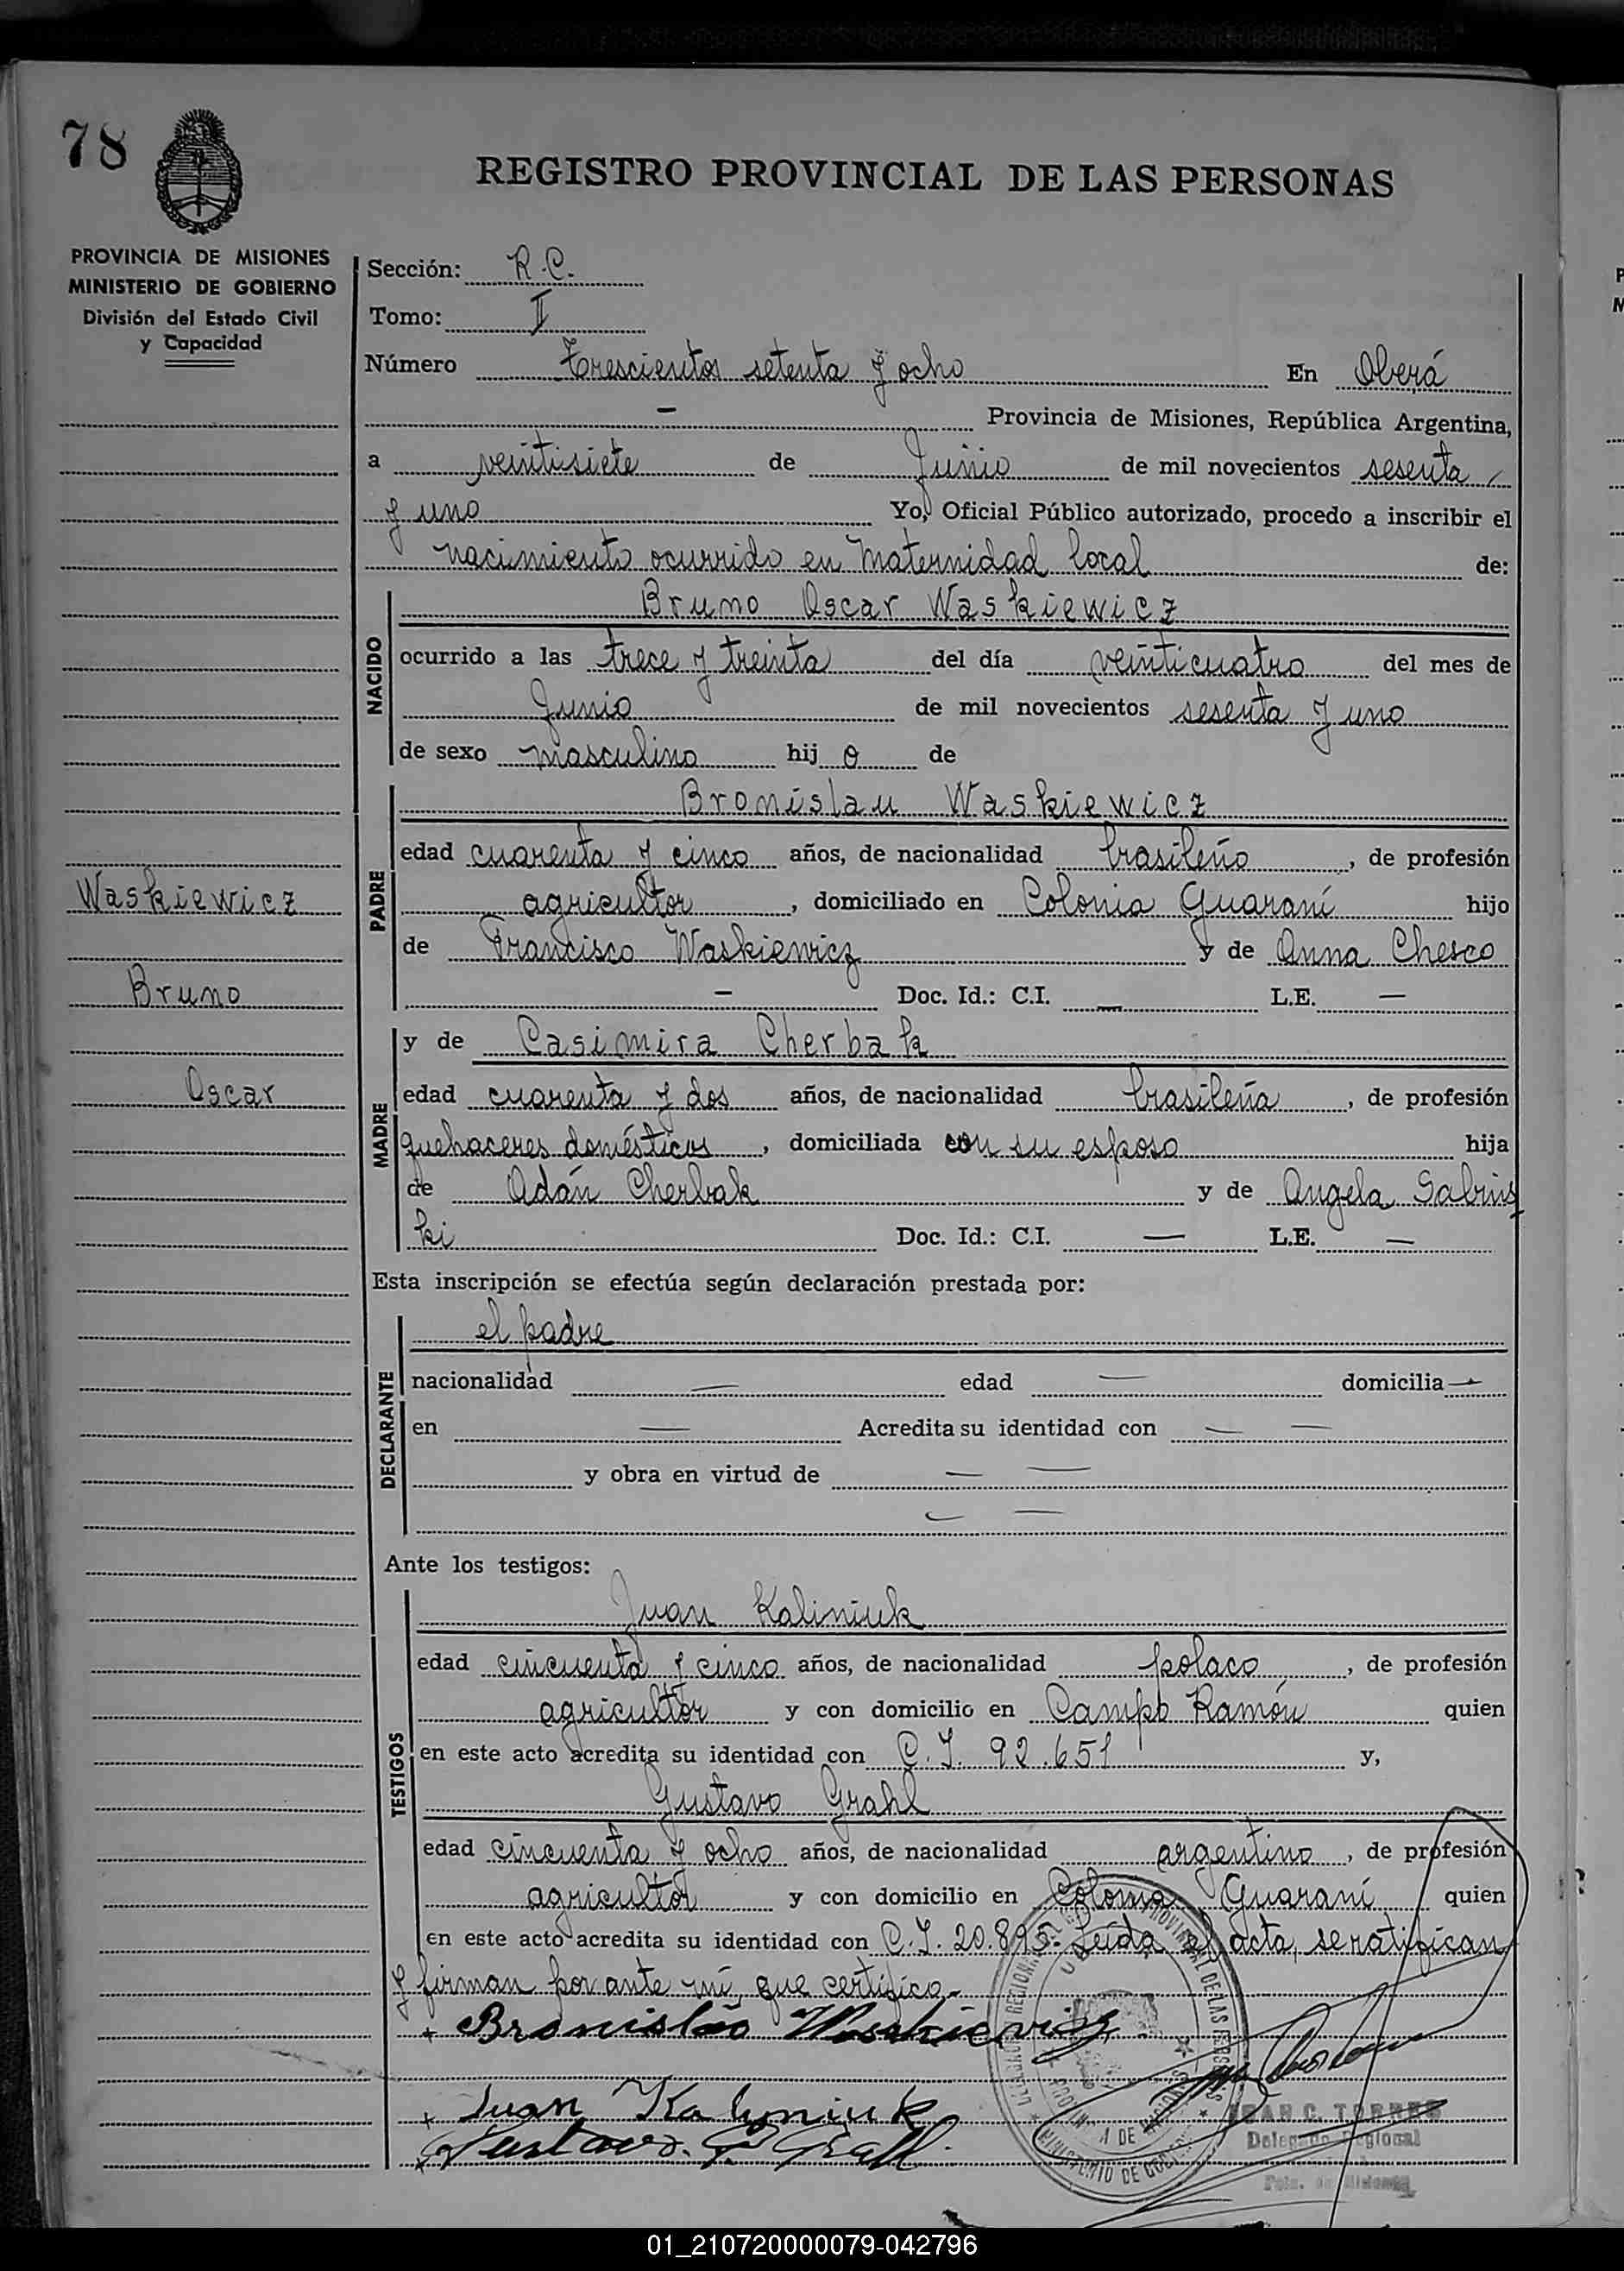 78
REGISTRO PROVINCIAL DE LAS PERSONAS
PROVINCIA DE MISIONES
MINISTERIO DE GOBIERNO
División del Estado Civil
y Capacidad
Sección: R.C.
Tomo: II
Número Trescientos setenta y ocho En Oberá
— Provincia de Misiones, República Argentina,
a veintisiete de Junio de mil novecientos sesenta
y uno Yo, Oficial Público autorizado, procedo a inscribir el
nacimiento ocurrido en Maternidad local de:
NACIDO
Bruno Oscar Waskiewicz
ocurrido a las trece y treinta del día veinticuatro del mes de
Junio de mil novecientos sesenta y uno
de sexo masculino hijo de
PADRE
Bronislau Waskiewicz
edad cuarenta y cinco años, de nacionalidad brasileño, de profesión
Waskiewicz
agricultor, domiciliado en Colonia Guaraní hijo
de Francisco Waskiewicz y de Anna Chesco
Bruno
— Doc. Id.: C.I. — L.E. —
MADRE
y de Casimira Cherbak
Oscar
edad cuarenta y dos años, de nacionalidad brasileña, de profesión
quehaceres domésticos, domiciliada con su esposo hija
de Adán Cherbak y de Angela Sabins
ki Doc. Id.: C.I. — L.E. —
Esta inscripción se efectúa según declaración prestada por:
DECLARANTE
el padre
nacionalidad — edad — domicilia —
en — Acredita su identidad con — —
y obra en virtud de — —
— —
Ante los testigos:
TESTIGOS
Juan Kaliniuk
edad cincuenta y cinco años, de nacionalidad polaco, de profesión
agricultor y con domicilio en Campo Ramón quien
en este acto acredita su identidad con C.I. 92.651 y,
Gustavo Grahl
edad cincuenta y ocho años, de nacionalidad argentino, de profesión
agricultor y con domicilio en Colonia Guaraní quien
en este acto acredita su identidad con C.I. 20.895.- Leída el acta, se ratifican
y firman por ante mí, que certifico.-
+ Bronislao Waskievicz
+ Juan Kalyniuk
+ Gustavo G. Grahl
JUAN C. TORRES
Delegado Regional
Pcia. de Misiones
01_210720000079-042796